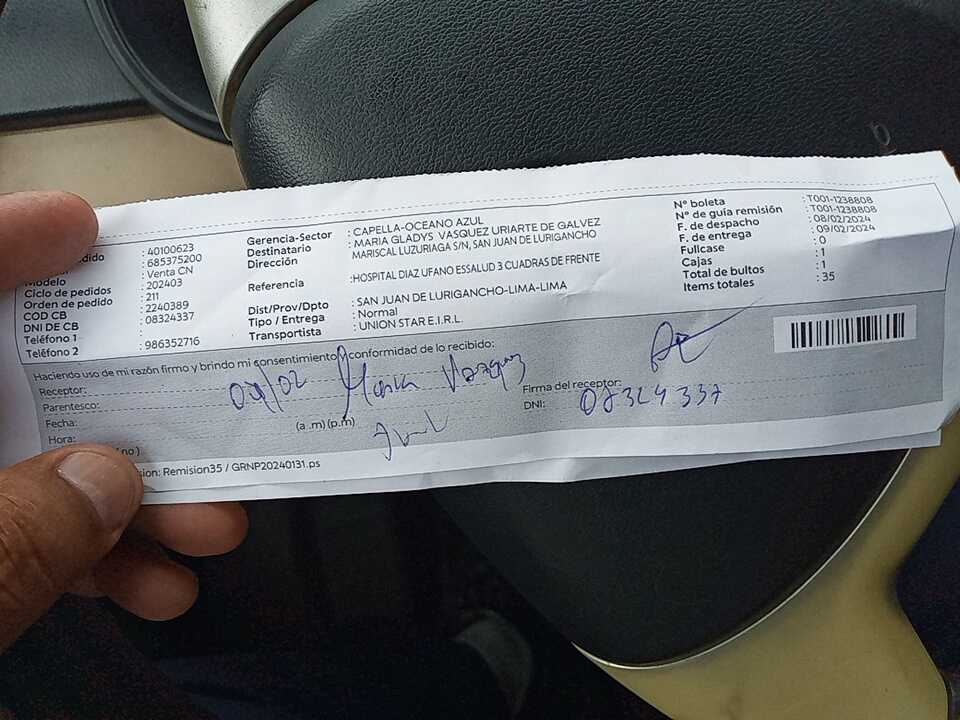 : 40100623
: 685375200
Modelo : Venta CN
Ciclo de pedidos : 202403
Orden de pedido : 211
COD CB : 2240389
DNI DE CB : 08324337
Teléfono 1 :
Teléfono 2 : 986352716
Gerencia-Sector : CAPELLA-OCEANO AZUL
Destinatario : MARIA GLADYS VASQUEZ URIARTE DE GALVEZ
Dirección MARISCAL LUZURIAGA S/N, SAN JUAN DE LURIGANCHO
Referencia :HOSPITAL DIAZ UFANO ESSALUD 3 CUADRAS DE FRENTE
Dist/Prov/Dpto : SAN JUAN DE LURIGANCHO-LIMA-LIMA
Tipo / Entrega : Normal
Transportista : UNION STAR E.I.R.L.
N° boleta : T001-1238808
N° de guía remisión : T001-1238808
F. de despacho : 08/02/2024
F. de entrega : 09/02/2024
Fullcase : 0
Cajas : 1
Total de bultos : 1
Items totales : 35
Haciendo uso de mi razón firmo y brindo mi consentimiento y conformidad de lo recibido:
Receptor: 09/02 Maria Vasquez
Parentesco:
Fecha:
Hora: (a .m) (p.m)
Firma del receptor:
DNI: 08324337
no )
sion: Remision35 / GRNP20240131.ps